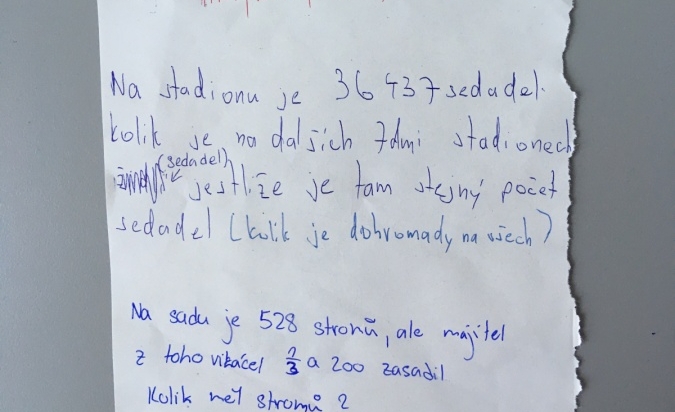 Na stadionu je 36 437 sedadel.
kolik je na dalsích 7dmi stadionech
(sedadel)
jestliže je tam stejný počet
sedadel (kolik je dohromady na všech)
Na sadu je 528 stromů, ale majitel
z toho vikácel a 200 zasadil
Kolik měl stromů?